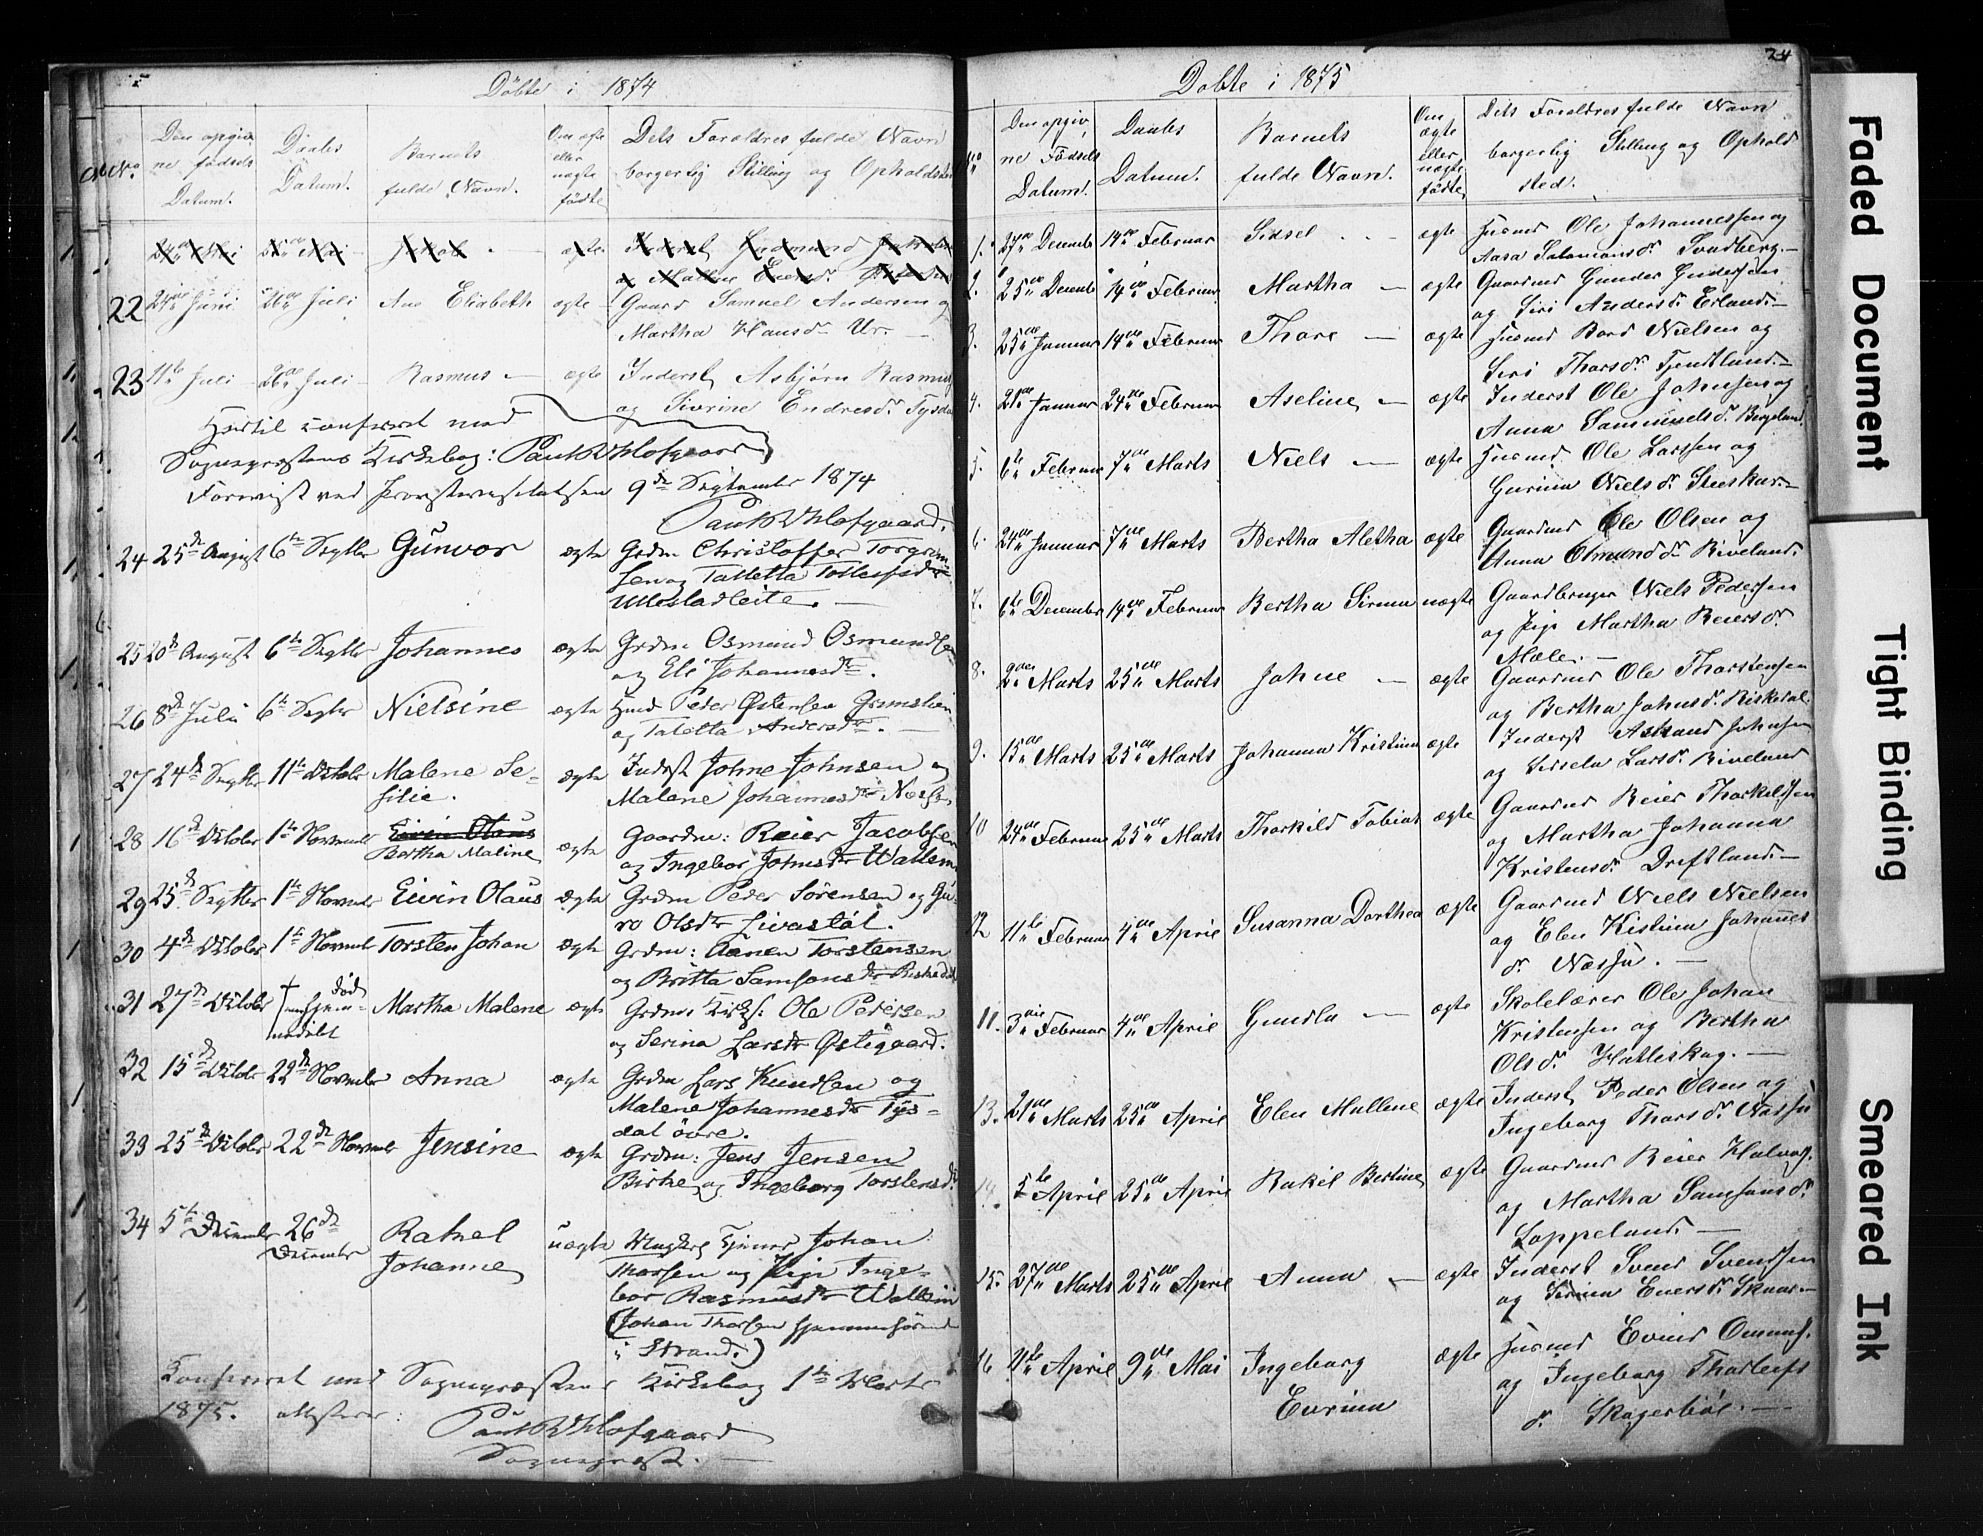 Döbte i 1874
No
Den opgiv
ne födsels
Datum.
Daabs
Datum.
Barnets
fulde Navn.
Om ægte
eller
uægte
födte
Dets Foraldres fulde Navn
borgerlig Stilling og Opholdsted
22 24de Juni 26de Juli Ane Elisabeth ægte Gaard Samuel Andersen og
Martha Hansdr Ur.
23 11te Juli 26de Juli Rasmus - ægte Inderst Asbjørn Rasmus
og Sivrine Endresdr Tysdal
Hertil confereret med
Sognepræstens Kirkebog: Paul Hofgaard
Forevist ved Provstevisitatsen 9de September 1874
Paul Hofgaard.
24 25de August 6te Septbr Gunvor ægte Grdm Christoffer Torgrim
sen og Talletta Tollefsdr
Ullestadleite.
25 20de August 6te Septbr Johannes ægte Grdm Osmund Osmundsen
og Eli Johannesdr.
26 8de Juli 6te Septbr Nielsine ægte Husmd Peder Østensen Grimslien
og Taletta Andersdr.
27 24de Septbr 11te October Malene Se- ægte Inderst Johne Johnsen og
silie. Malene Johannesdr Nesse
28 16de October 1te November Eivin Olaus
Bertha Maline ægte Gaardm: Reier Jacobsen
og Ingebor Johnsdr Wattem
29 25de Septbr 1te November Eivin Olaus ægte Grdm Peder Sörensen og Gu-
ro Olsdr Livastöl.
30 4de October 1te November Torsten Johan ægte Grdm: Aanen Torstensen
og Britta Samsonsdr Riskedal
31 27de October † død
hjem-
medöbt Martha Malene ægte Grdm Kirks: Ole Pedersen
og Serina Larsdr Østigaard.
32 15de October 22de November Anna ægte Grdm Lars Knudsen og
Malene Johannesdr Tys-
dal övre.
33 25de October 22de November Jensine ægte Grdm: Jens Jensen
Birke og Ingeborg Torstensdr
34 5te December 26de
December Rakel
Johanne uægte Ungkarl Tjener Johan
Thorsen og Pige Inge-
bor Rasmusdr Wattem
(Johan Thorsen hjemmehörende
i Strand.)
Confereret med Sognepræstens Kirkebog 1te Marts
1875. attesterer:
Paul Hofgaard
Sognepræst.
24
Döbte i 1875
No
Den opgiv
ne Födsels
Datum.
Daabs
Datum.
Barnets
fulde Navn.
Om
ægte
eller
uægte
födte
Dets Foraldres fulde Navn
borgerlig Stilling og Ophold
sted.
1. 27de Decembr 14de Februar Sidsel - ægte Husmd Ole Johannessen og
Aasa Salomonsdr Svadberg.
2. 25de Decembr 14de Februar Martha - ægte Gaardmd Gunder Gundersen
og Siri Andersdr Erland.
3. 25de Januar 14de Februar Thore - ægte Husmd Bord Nielsen og
Siri Thorsdr Tjentland.
4. 21de Januar 24de Februar Aseline - ægte Inderst Ole Johnsen og
Anna Sammuelsdr Bergeland
5. 6te Februar 7de Marts Niels - ægte Husmd Ole Larssen og
Gurina Nielsdr Stuskar.
6. 24de Januar 7de Marts Bertha Aletha ægte Gaardmd Ole Olsen og
Anna Osmundsdr Riveland.
7. 6te December 14de Februar Bertha Sirina uægte Gaardbruger Niels Pedersen
og Pige Martha Reiersdr
Mæle.
8. 2den Marts 25de Marts Johne - ægte Gaardmd Ole Thorstensen
og Bertha Johnsdr Riskedal
9. 15de Marts 25de Marts Johanna Kristina ægte Inderst Asland Johnsen
og Sissela Larsdr Riveland
10 24de Februar 25de Marts Thorkild Tobias ægte Gaardmd Reier Thorkildsen
og Martha Johanna
Kristensdr Dreftland.
12 11te Februar 4de April Susanna Dorthea ægte Gaardmd Niels Nielsen
og Elen Kistina Johannes
dr Næssu.
11. 3die Februar 4de April Gundla - ægte Skolelærer Ole Johan
Kristensen og Bertha
Olsdr Hatleskog.
13. 21de Marts 25de April Elen Mallene ægte Inderst Peder Olsen og
Ingeborg Thorsdr Næssu
14. 5te April 25de April Rakel Bertine ægte Gaardmd Reier Halvors.
og Martha Samsonsdr
Loppeland.
15. 27de Marts 25de April Anna - ægte Inderst Svend Svendsen
og Serina Enersdr Skaar.
16 11te April 9de Mai Ingeborg
Evrina ægte Husmd Evind Omunds.
og Ingeborg Thorleifs
dr Skogerböe.
Faded Document
Tight Binding
Smeared Ink